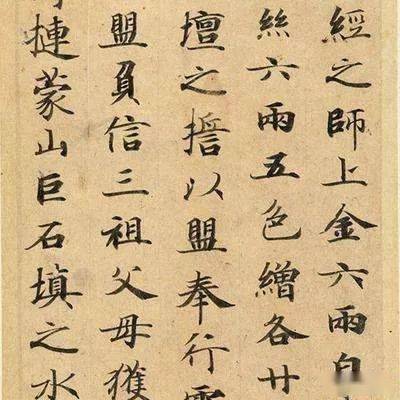 經之師上金六兩白
絲六兩五色繒各廿
壇之誓以盟奉行
盟負信三祖父母獲
摙蒙山巨石填之水